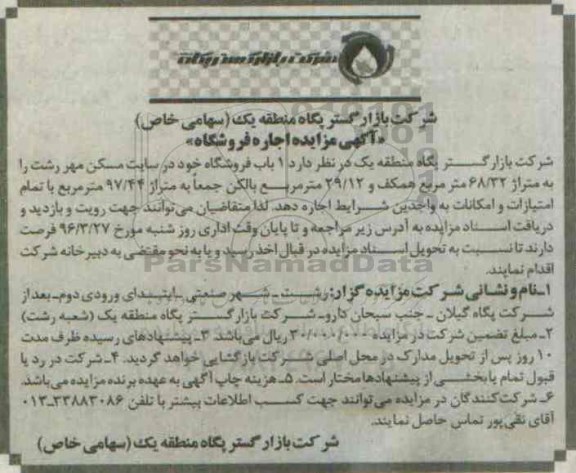 شرکت بازارگستر پگاه
شرکت بازارگستر پگاه منطقه یک (سهامی خاص)
«آگهی مزایده اجاره فروشگاه»
شرکت بازارگستر پگاه منطقه یک در نظر دارد ۱ باب فروشگاه خود در سایت مسکن مهر رشت را
به متراژ ۶۸/۳۲ متر مربع همکف و ۲۹/۱۲ مترمربع بالکن جمعاً به متراژ ۹۷/۴۴ مترمربع با تمام
امتیازات و امکانات به واجدین شرایط اجاره دهد. لذا متقاضیان می‌توانند جهت رویت و بازدید و
دریافت اسناد مزایده به آدرس زیر مراجعه و تا پایان وقت اداری روز شنبه مورخ ۹۶/۳/۲۷ فرصت
دارند تا نسبت به تحویل اسناد مزایده در قبال اخذ رسید و یا به نحو مقتضی به دبیرخانه شرکت
اقدام نمایند.
ParsNamadData
۱ـ نام و نشانی شرکت مزایده گزار: رشت ـ شهر صنعتی ـ ابتدای ورودی دوم ـ بعد از
شرکت پگاه گیلان ـ جنب سبحان دارو ـ شرکت بازارگستر پگاه منطقه یک (شعبه رشت)
۲ـ مبلغ تضمین شرکت در مزایده ۳۰/۰۰۰/۰۰۰ ریال می‌باشد. ۳ـ پیشنهادهای رسیده ظرف مدت
۱۰ روز پس از تحویل مدارک در محل اصلی شرکت بازگشایی خواهد گردید. ۴ـ شرکت در رد یا
قبول تمام یا بخشی از پیشنهادها مختار است. ۵ـ هزینه چاپ آگهی به عهده برنده مزایده می‌باشد.
۶ـ شرکت‌کنندگان در مزایده می‌توانند جهت کسب اطلاعات بیشتر با تلفن ۳۳۸۸۳۰۸۶-۰۱۳
آقای نقی‌پور تماس حاصل نمایند.
شرکت بازارگستر پگاه منطقه یک (سهامی خاص)